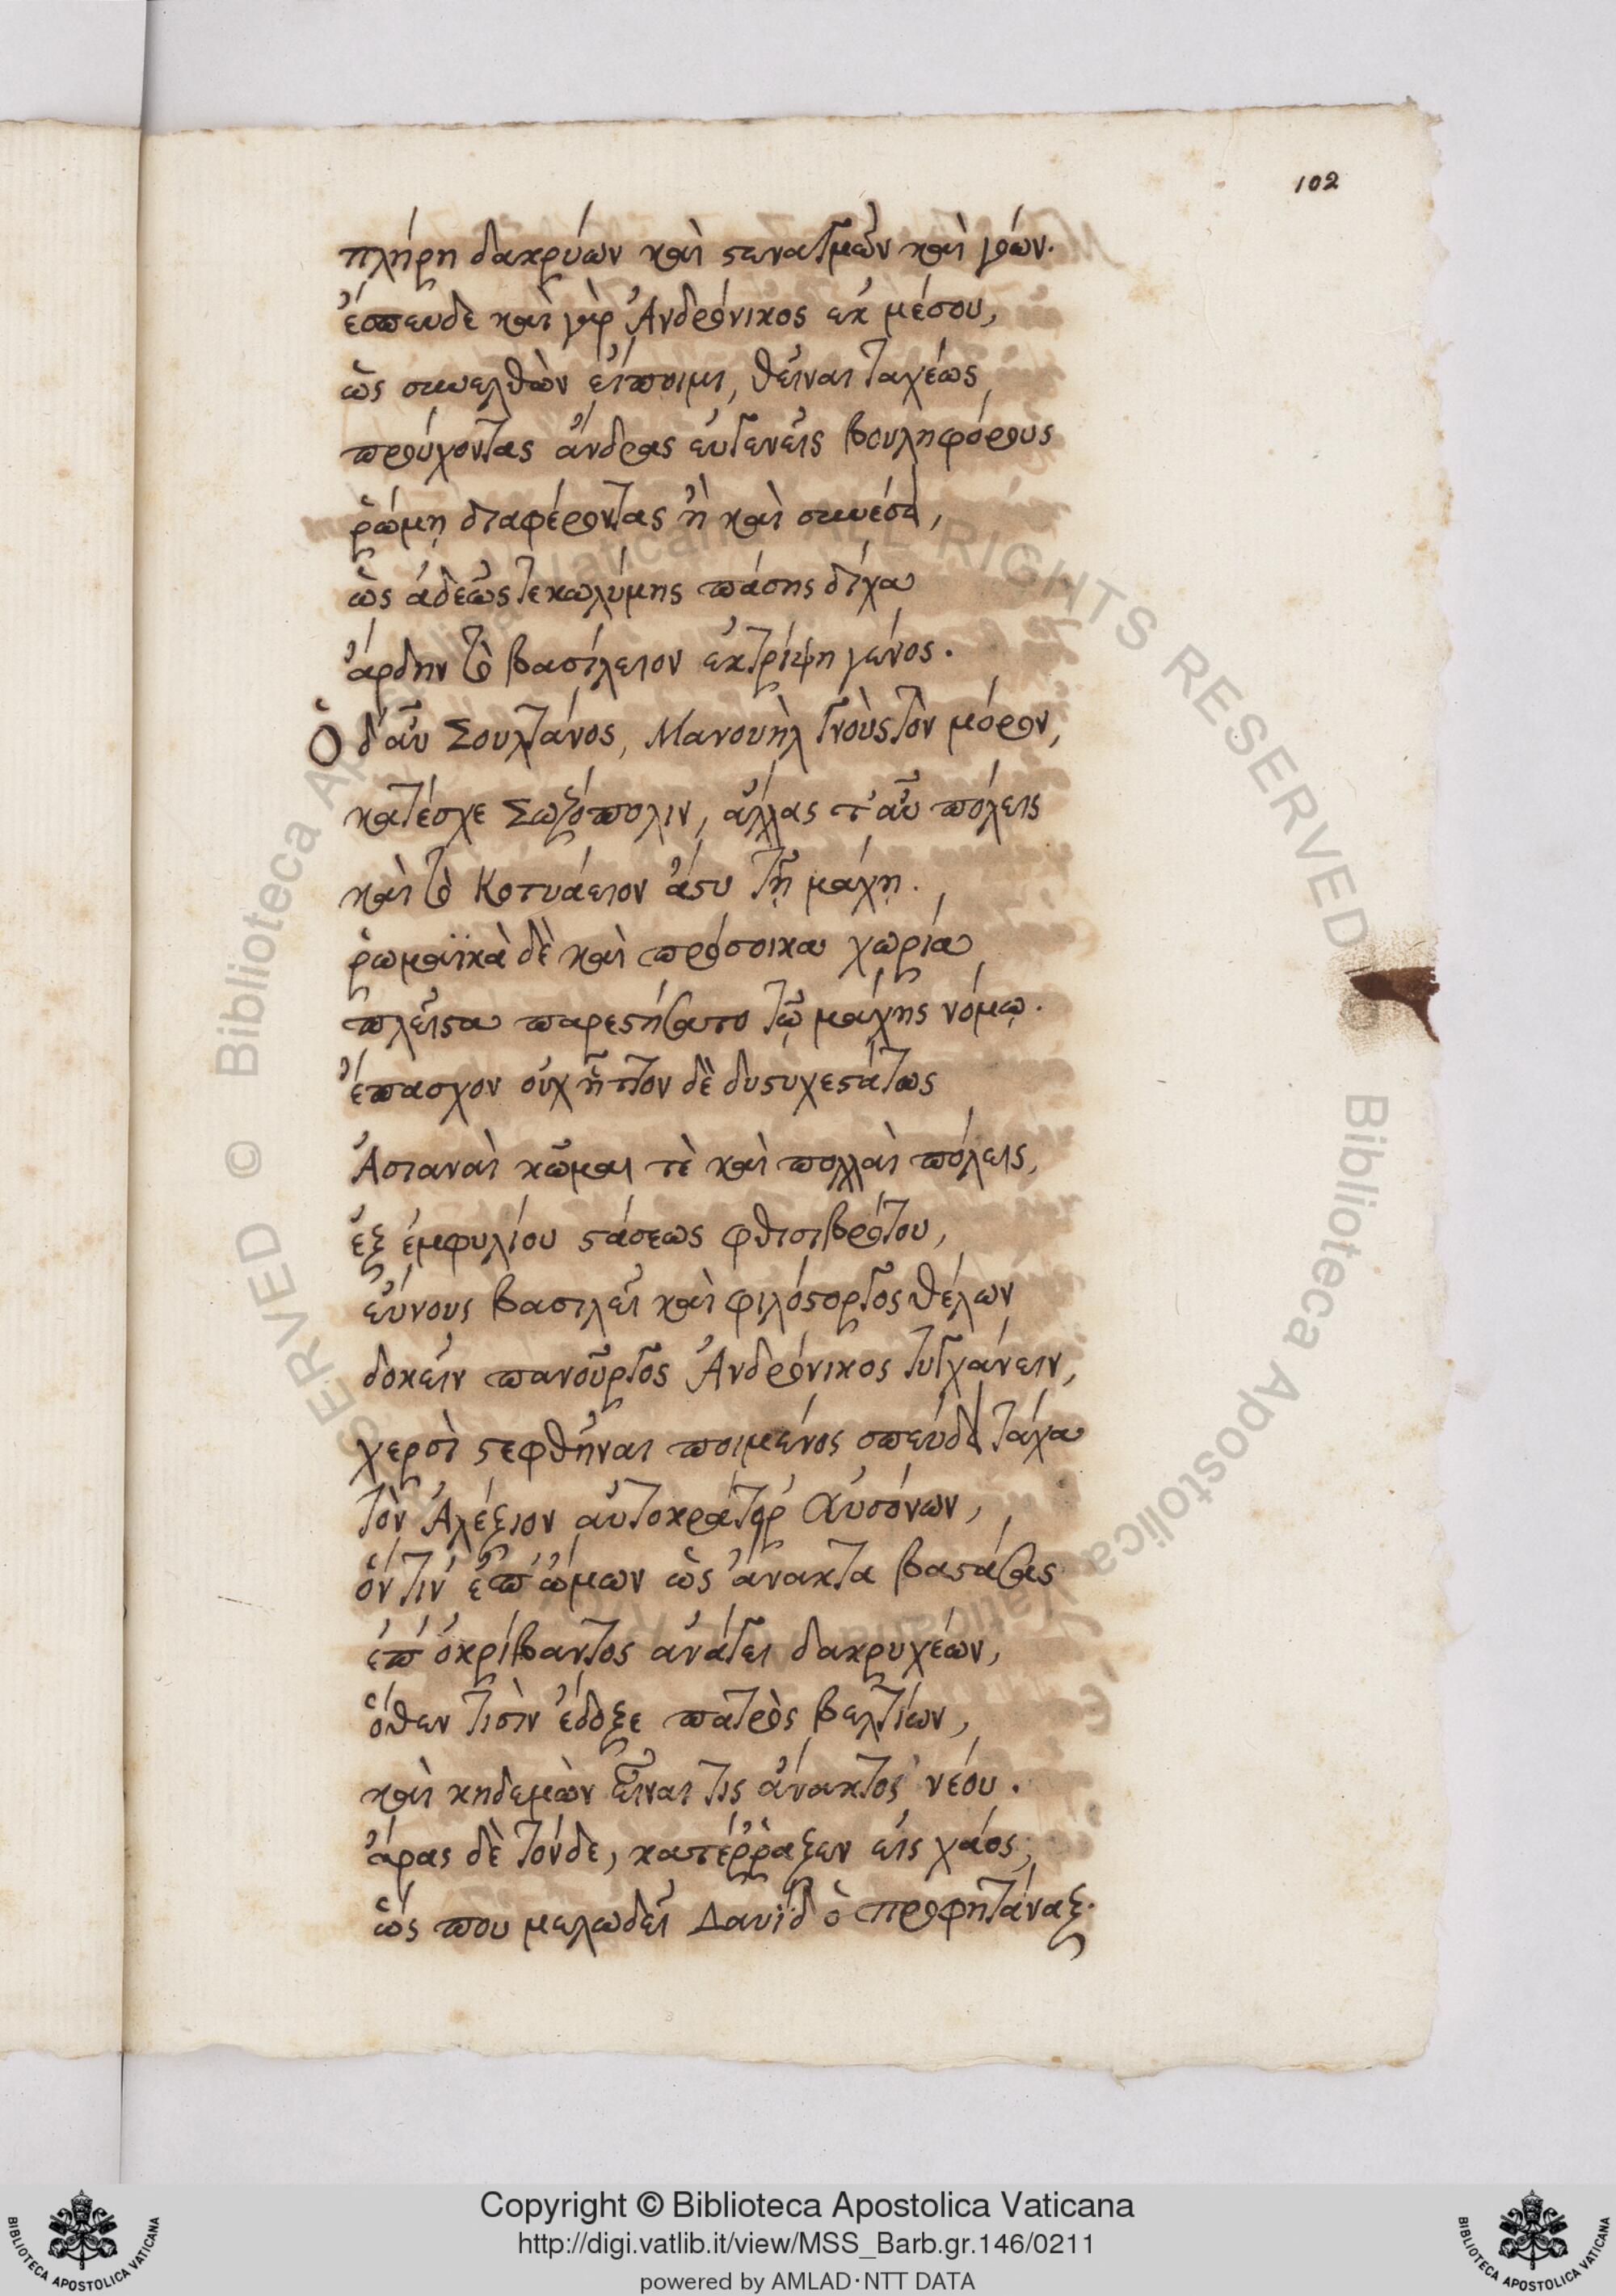 102
πλήρη δακρύων καὶ στεναγμῶν καὶ γόων.
ἔσπευδε καὶ γὰρ Ἀνδρόνικος ἐκ μέσου,
ὡς συνελθὼν εἴποιμι, θεῖναι ταχέως
προύχοντας ἄνδρας εὐγενεῖς βουληφόρους
ῥώμῃ διαφέροντας ἢ καὶ συνέσει,
ὡς ἀδεῶς τε κωλύμης πάσης δίχα
ἄρδην τὸ βασίλειον ἐκτρίψῃ γένος.
Ὁ δ' αὖ Σουλτάνος, Μανουὴλ γνοὺς τὸν μόρον,
κατέσχε Σωζόπολιν, ἄλλας τ' αὖ πόλεις
καὶ τὸ Κοτυάειον ἄστυ τῇ μάχῃ.
ῥωμαϊκὰ δὲ καὶ πρόσοικα χωρία
πλεῖστα παρεστήσατο τῷ μάχης νόμῳ.
ἔπασχον οὐχ ἧττον δὲ δυστυχεστάτως
Ἀσιαναὶ κῶμαι τὲ καὶ πολλαὶ πόλεις,
ἐξ ἐμφυλίου στάσεως φθισιβρότου,
εὔνους βασιλεῖ καὶ φιλόστοργος θέλων
δοκεῖν πανοῦργος Ἀνδρόνικος τυγχάνειν,
χερσὶ στεφθῆναι ποιμένος σπεύδει τάχα
τὸν Ἀλέξιον αὐτοκράτορ' Αὐσόνων,
ὅν τιν' ἐπ' ὤμων ὡς ἄνακτα βαστάσας
ἐπ' ὀκρίβαντος ἀνάγει δακρυχέων,
ὅθεν τισὶν ἔδοξε πατρὸς βελτίων,
καὶ κηδεμὼν εἶναι τις ἄνακτος νέου.
ἄρας δὲ τόνδε, κατέῤῥαξεν εἰς χάος,
ὥς που μελωδεῖ Δαυῒδ ὁ προφητάναξ.
Copyright © Biblioteca Apostolica Vaticana
http://digi.vatlib.it/view/MSS_Barb.gr.146/0211
powered by AMLAD·NTT DATA
BIBLIOTECA APOSTOLICA VATICANA
BIBLIOTECA APOSTOLICA VATICANA